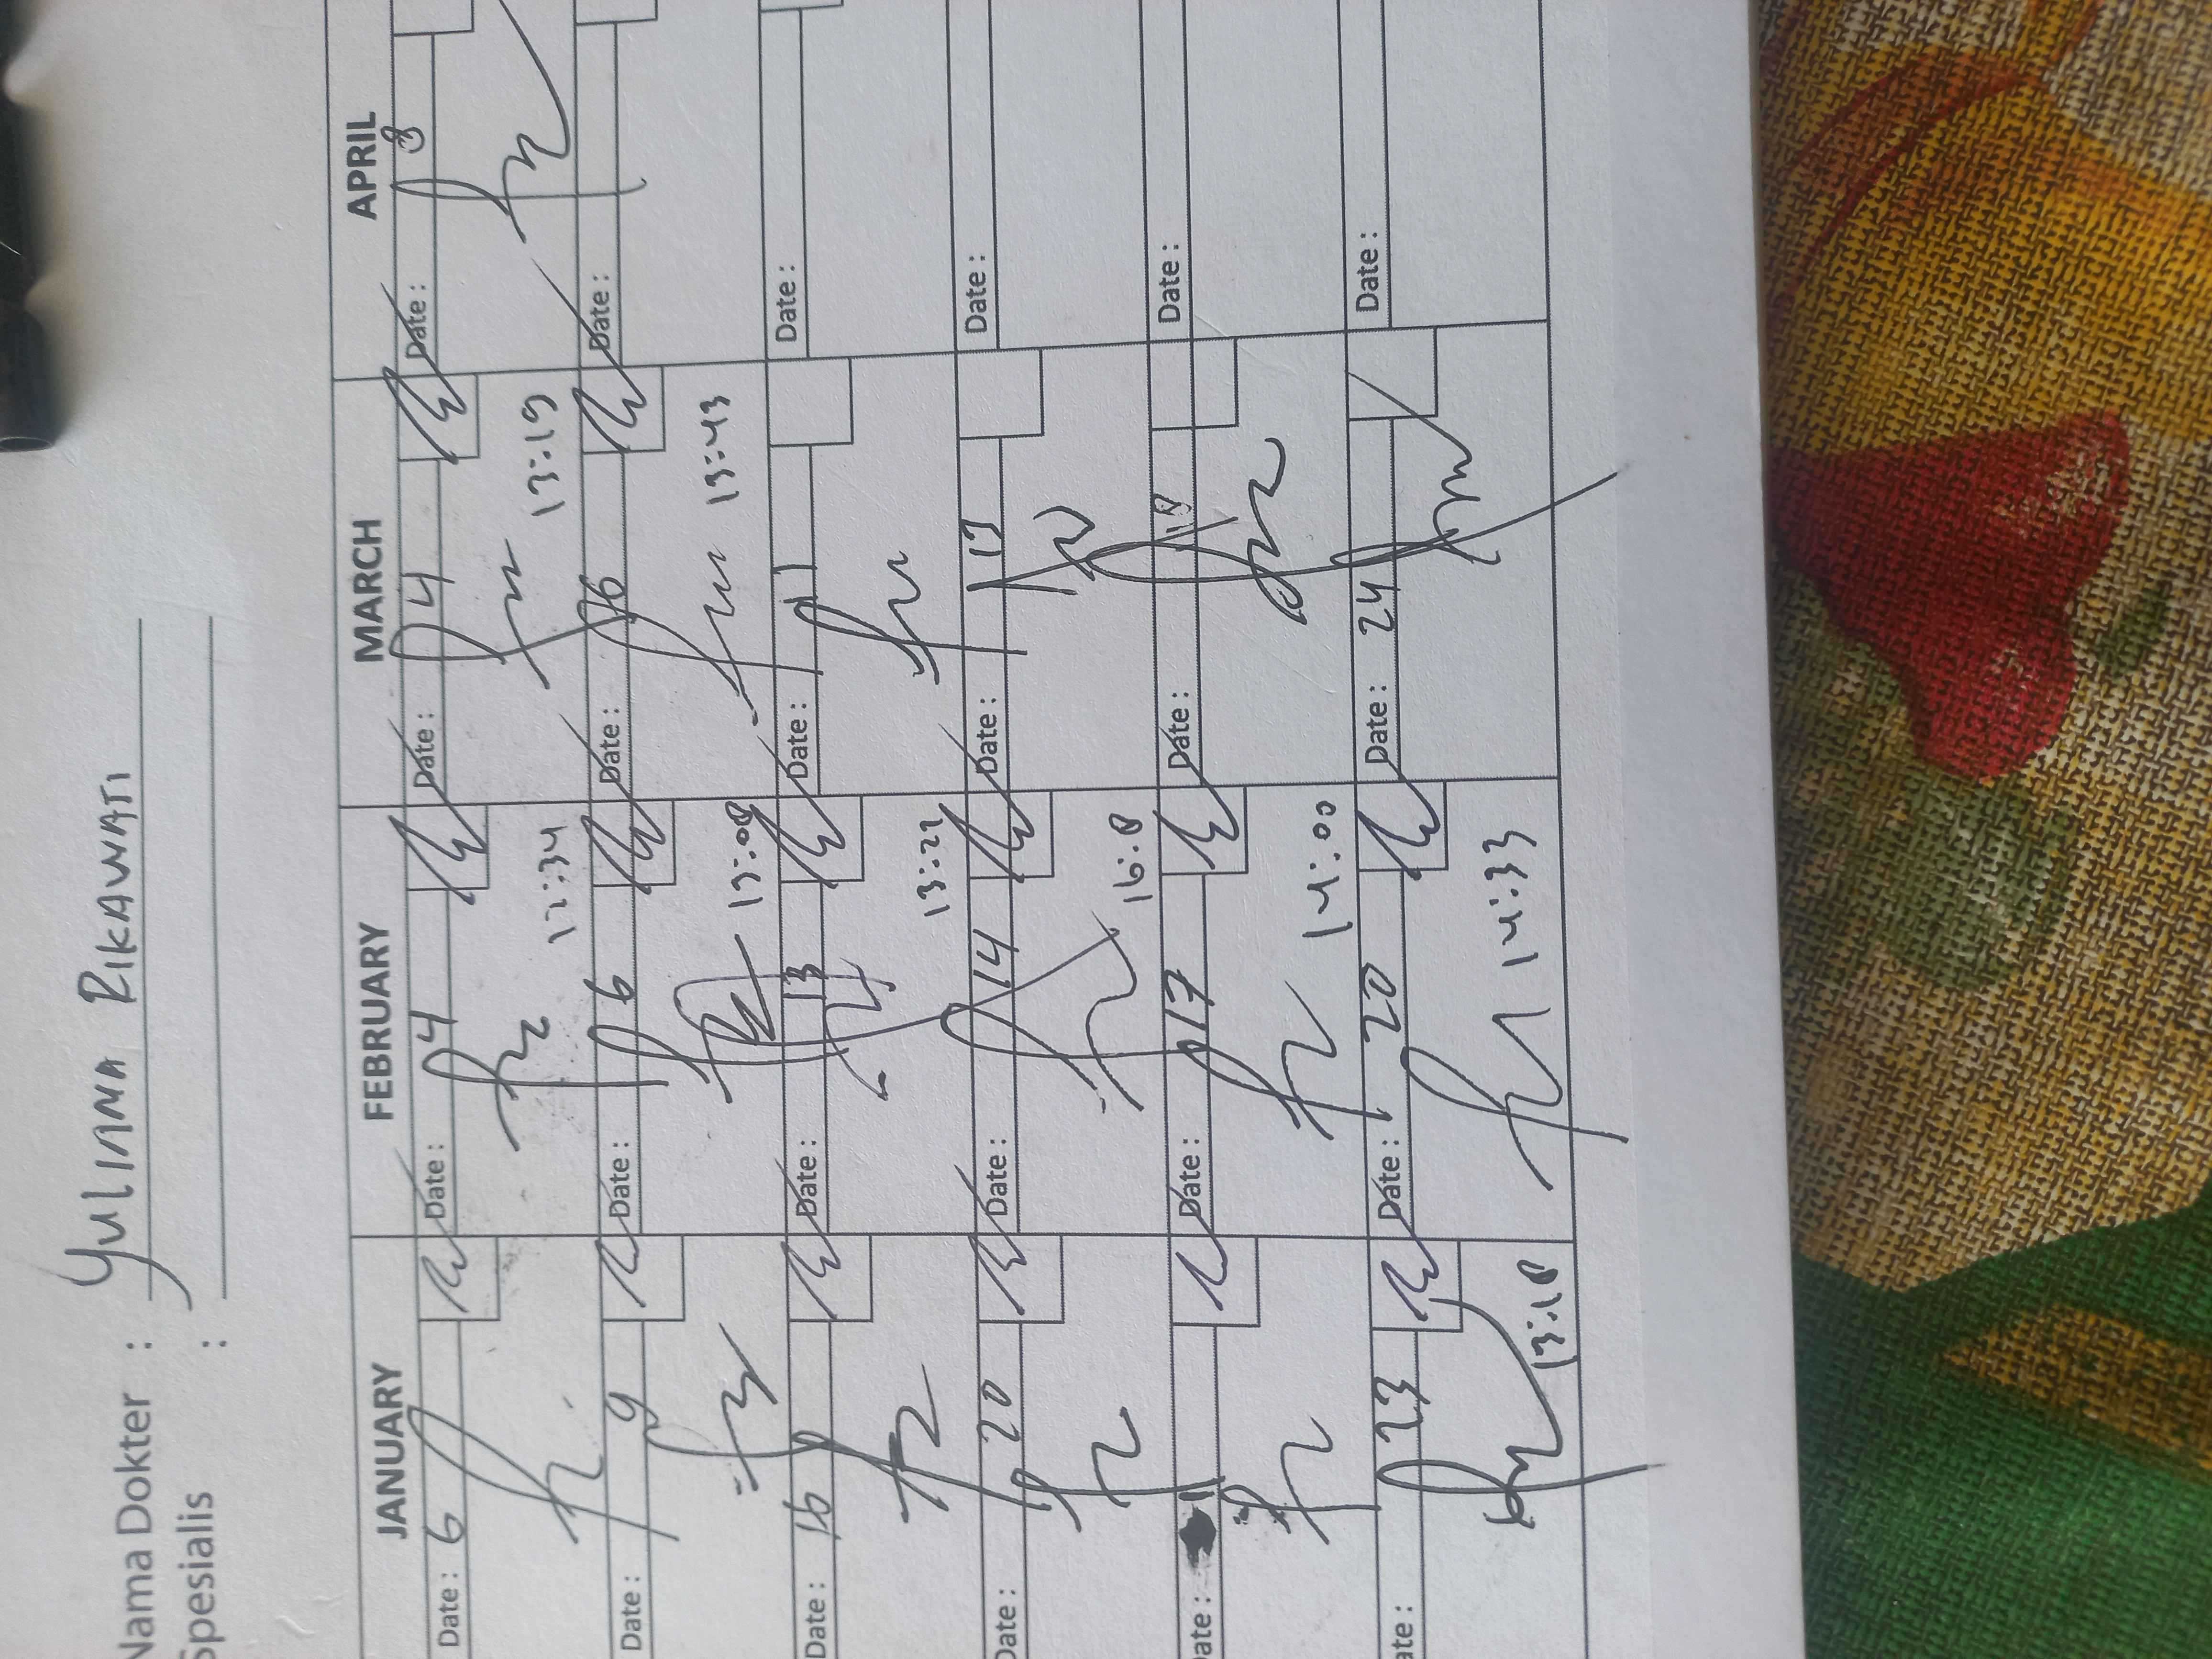 Nama Dokter : YULIANA RIKAWATI
Spesialis :
JANUARY FEBRUARY MARCH APRIL
Date : 6 Date : 4 Date : 4 Date : 8
12:34 13:19
Date : 9 Date : 6 Date : 6 Date :
13:08 13:43
Date : 16 Date : 13 Date : 11 Date :
13:22
Date : 20 Date : 14 Date : 17 Date :
16:8
Date : Date : 17 Date : 18 Date :
14:00
Date : 23 Date : 20 Date : 24 Date :
13:18 14:33